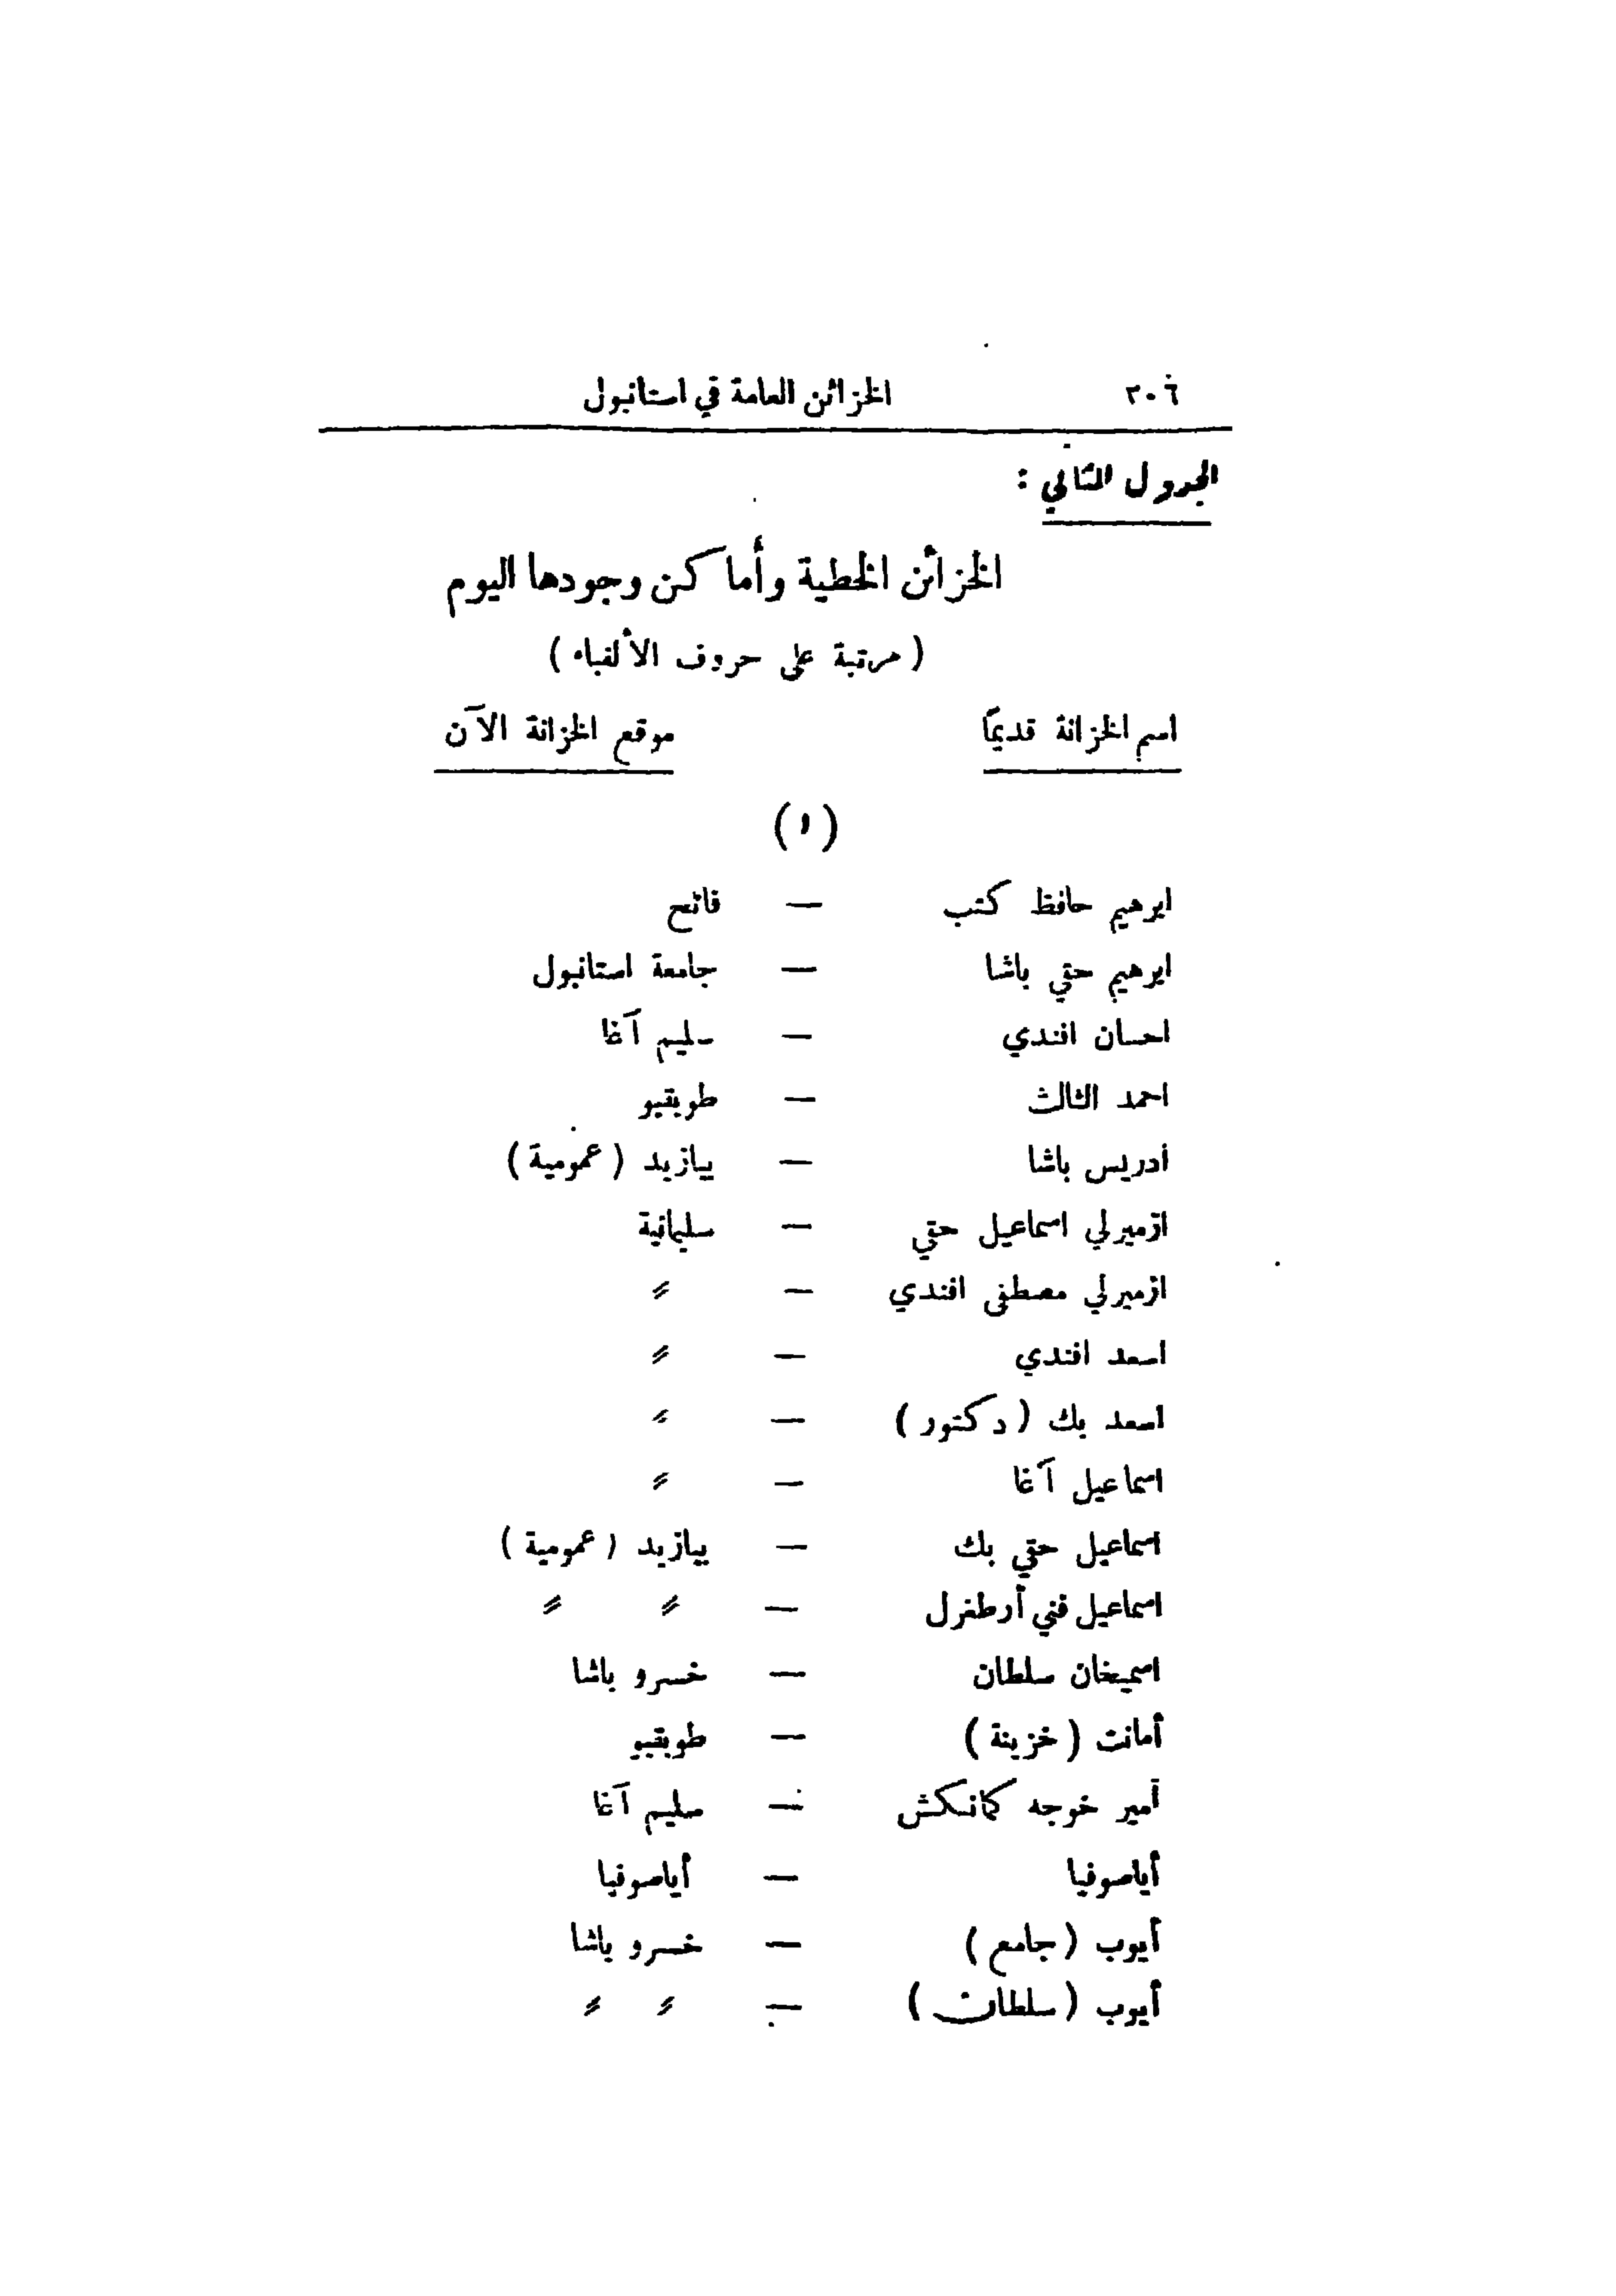 ٣٠٦ الخزائن العامة في استانبول
الجدول الثاني :
الخزائن الخطية وأماكن وجودها اليوم
( مرتبة على حروف الألفباء )
اسم الخزانة قديمًا موقع الخزانة الآن
( ا )
ابرهيم حافظ كتب — فاتح
ابرهيم حقي باشا — جامعة استانبول
احسان افندي — سليم آغا
احمد الثالث — طوبقبو
ادريس باشا — بيازيد ( عمومية )
ازميرلي اسماعيل حقي — سليمانية
ازميرلي مصطفى افندي — 〃
اسعد افندي — 〃
اسعد بك ( دكتور ) — 〃
اسماعيل آغا — 〃
اسماعيل حقي بك — بيازيد ( عمومية )
اسماعيل فني أرطغرل — 〃 〃
اسميخان سلطان — خسرو باشا
أمانت ( خزينة ) — طوبقبو
أمير خوجه كمانكش — سليم آغا
أياصوفيا — أياصوفيا
أيوب ( جامع ) — خسرو باشا
أيوب ( سلطان ) — 〃 〃